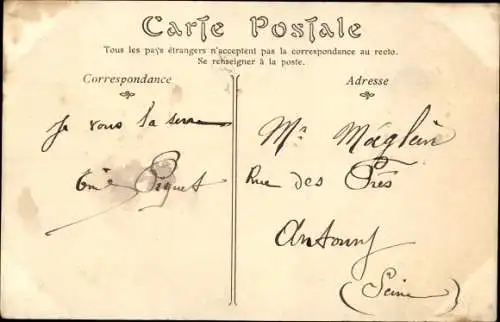 Carte Postale
Tous les pays étrangers n'acceptent pas la correspondance au recto.
Se renseigner à la poste.
Correspondance
Adresse
Je vous la serre
Piquet
Mr Maglin
Rue des Prés
Antony
(Seine)